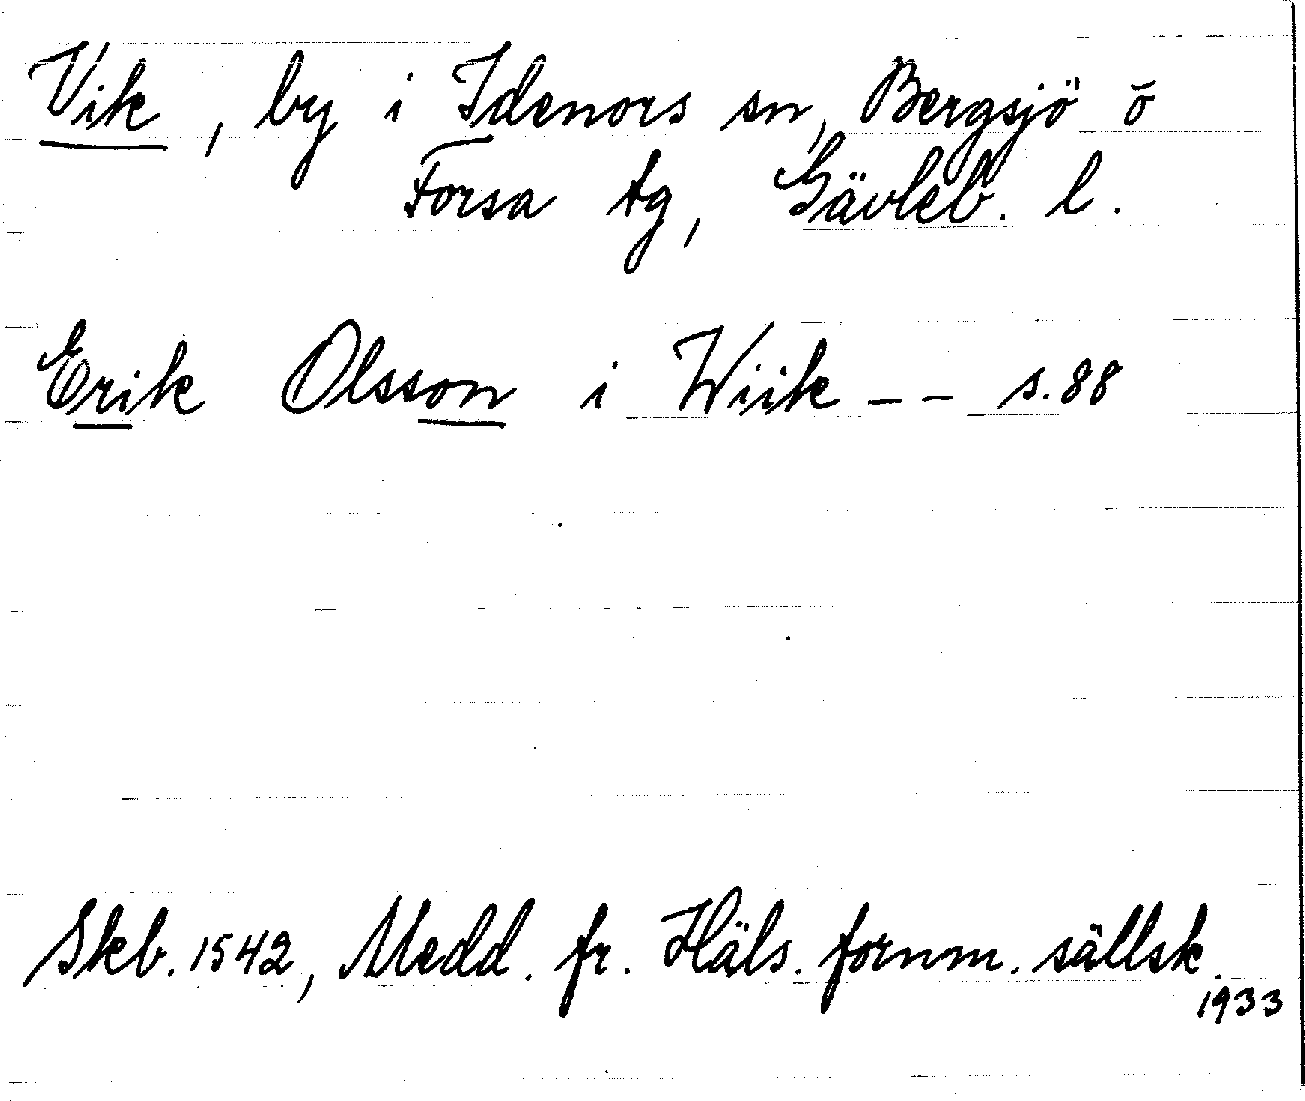 Vik, by i Idenors sn, Bergsjö o
Forsa tg, Gävleb. l.
Erik Olsson i Wiik -- s. 88
Skeb. 1542, Medd. fr. Häls. fornm. sällsk.
1933